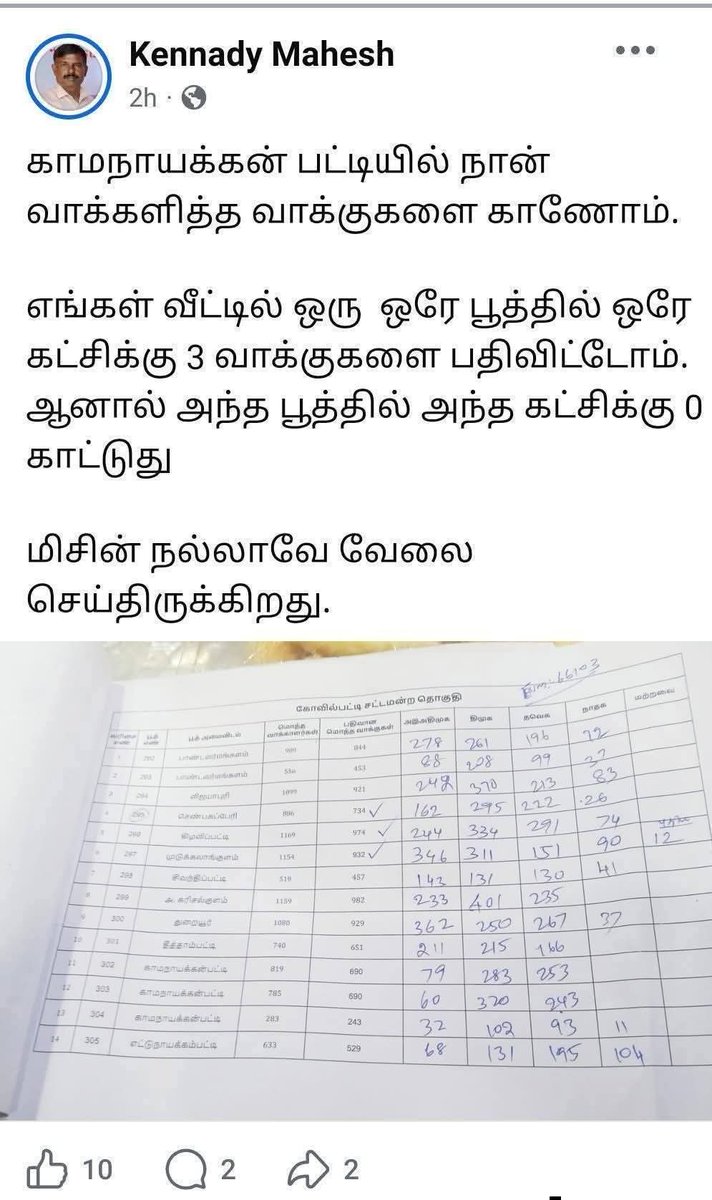 Kennady Mahesh
2h
காமநாயக்கன் பட்டியில் நான்
வாக்களித்த வாக்குகளை காணோம்.
எங்கள் வீட்டில் ஒரு ஒரே பூத்தில் ஒரே
கட்சிக்கு 3 வாக்குகளை பதிவிட்டோம்.
ஆனால் அந்த பூத்தில் அந்த கட்சிக்கு 0
காட்டுது
மிசின் நல்லாவே வேலை
செய்திருக்கிறது.
66103
கோவில்பட்டி சட்டமன்ற தொகுதி
வரிசை எண் பூத் எண் பூத் அமைவிடம் மொத்த வாக்காளர்கள் பதிவான மொத்த வாக்குகள் அஇஅதிமுக திமுக தவெக நாதக மற்றவை
1 292 பாண்டவர்மங்கலம் 844 278 261 196 72
2 293 பாண்டவர்மங்கலம் 453 88 208 99 37
3 294 விஜயாபுரி 1099 921 242 370 213 83
4 295 செண்பகப்பேரி 886 734 162 295 222 26
5 296 கிழவிப்பட்டி 1169 974 244 334 291 74
6 297 முடுக்கலாங்குளம் 1154 932 346 311 151 90 12
7 298 சிவந்திப்பட்டி 519 457 143 131 130 41
8 299 அ. கரிசல்குளம் 1159 982 233 401 235
9 300 துறையூர் 1080 929 362 250 267 37
10 301 இத்தாம்பட்டி 740 651 211 215 166
11 302 காமநாயக்கன்பட்டி 819 690 79 283 253
12 303 காமநாயக்கன்பட்டி 785 690 60 320 243
13 304 காமநாயக்கன்பட்டி 283 243 32 102 93 11
14 305 எட்டுநாயக்கம்பட்டி 633 529 68 131 195 104
10 2 2